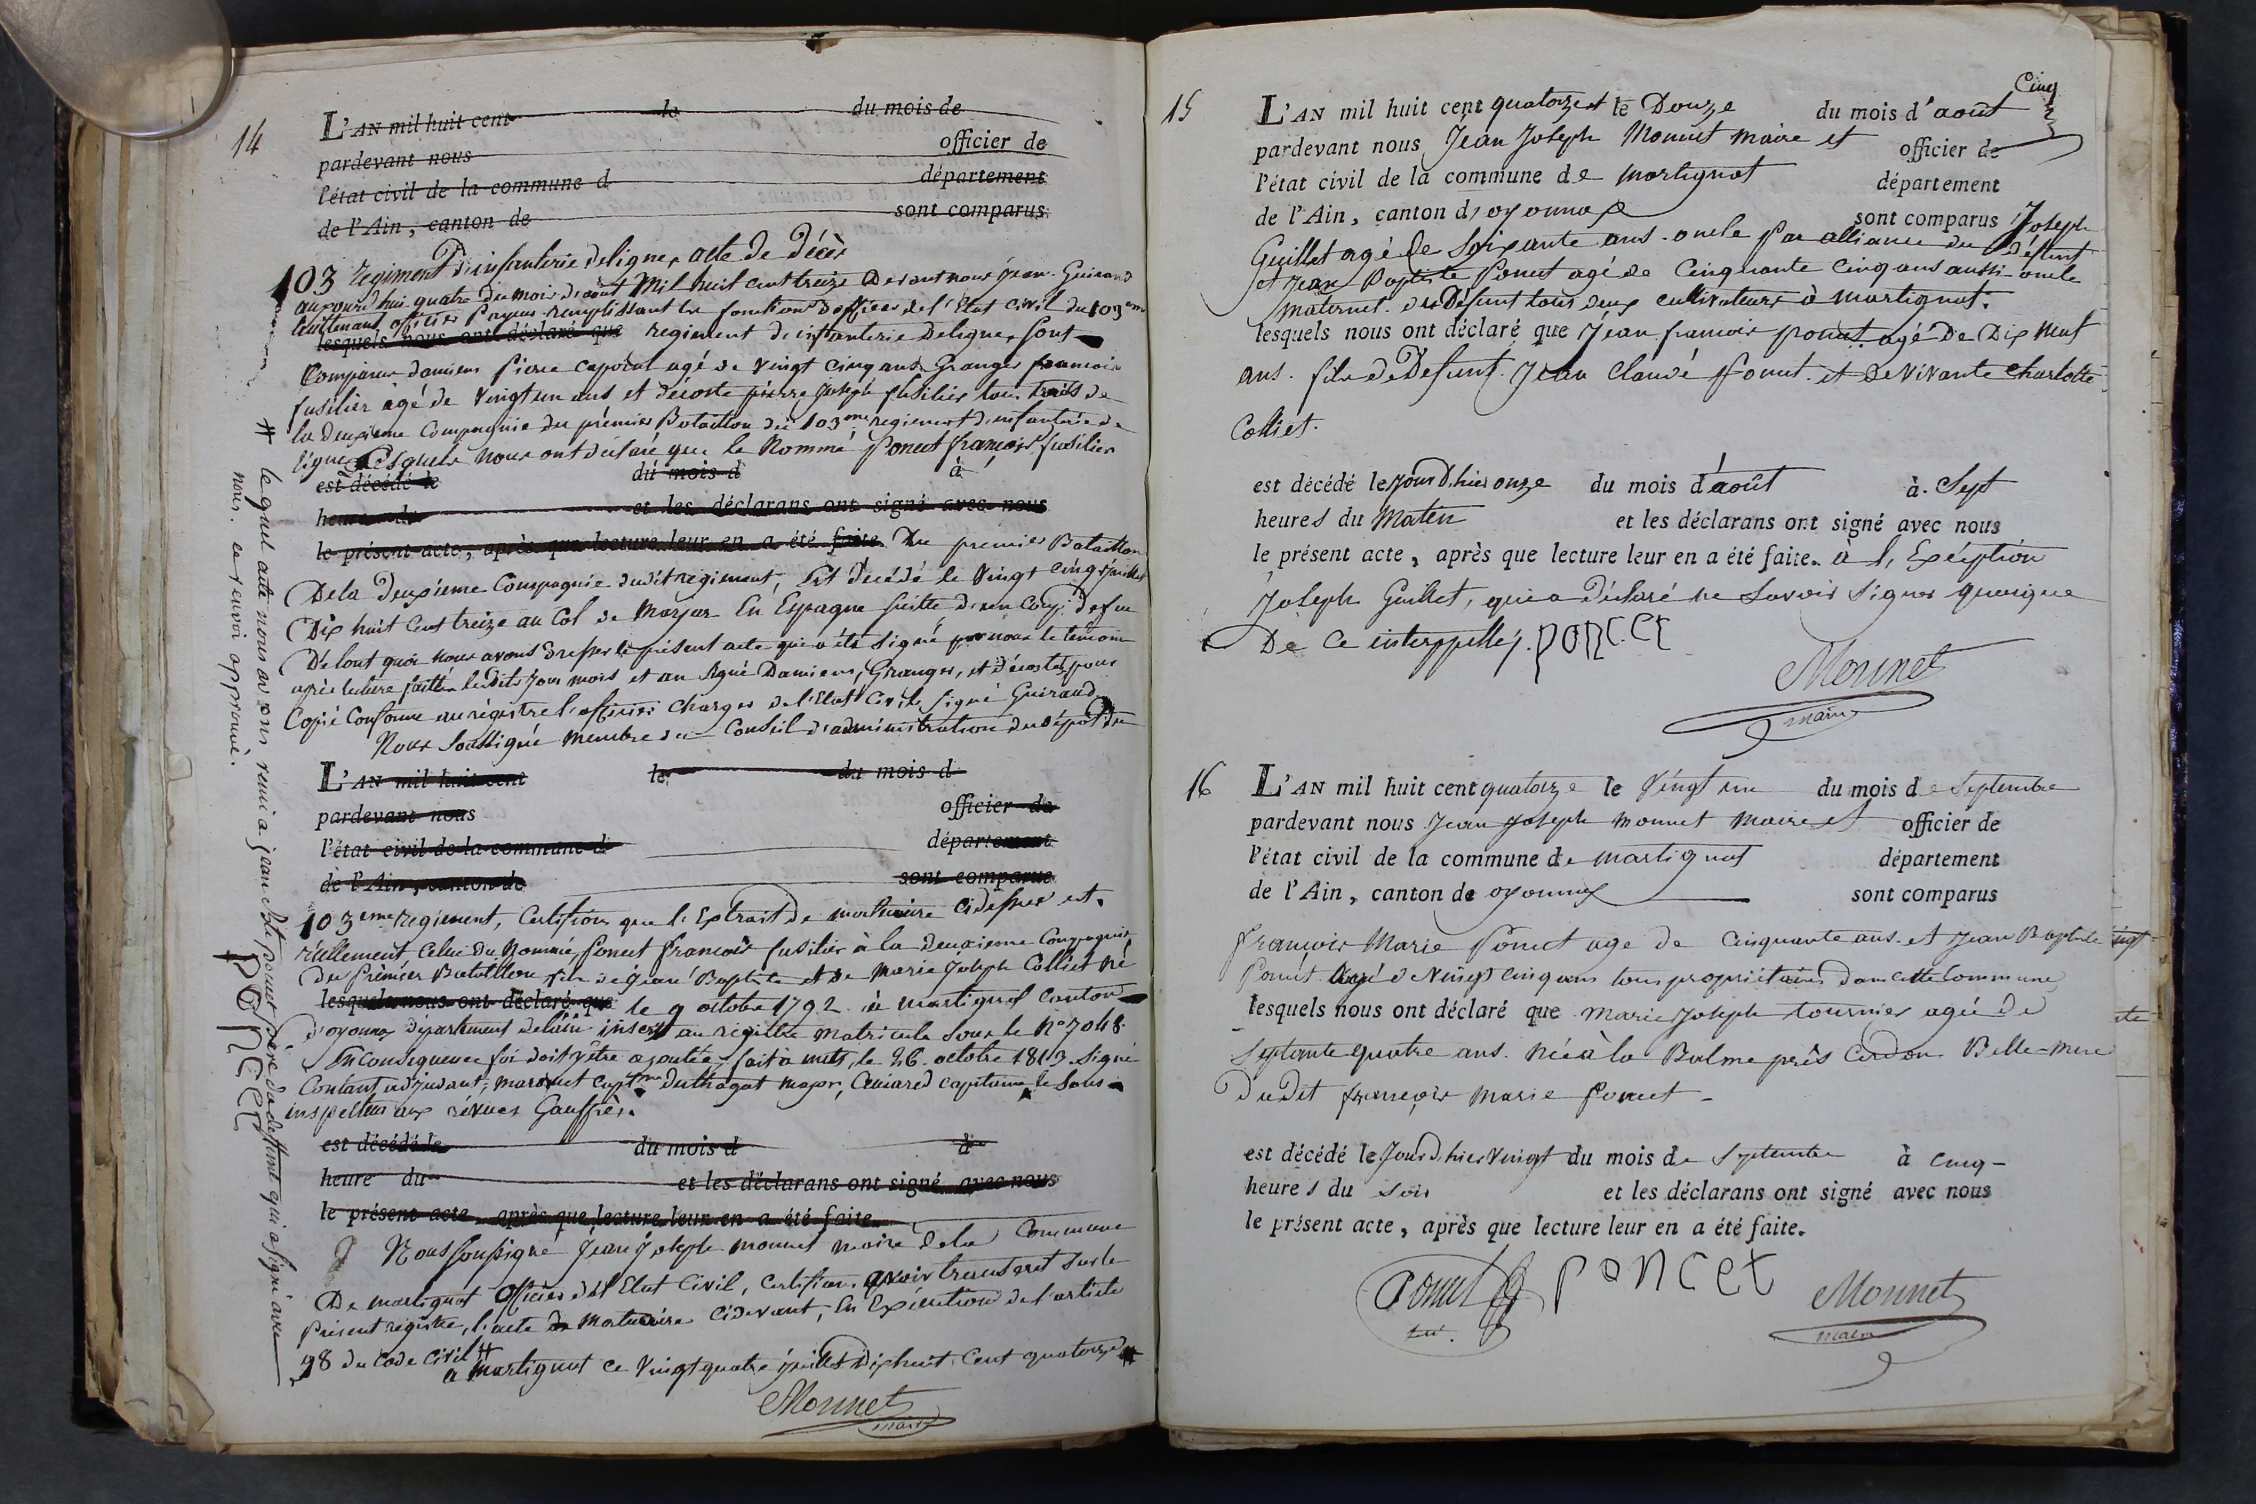 14
L'AN mil huit cent le du mois de
pardevant nous officier de
l'état civil de la commune d département
de l'Ain, canton de sont comparus
103 regiment d'infanterie deligne, acte de décès
aujourd'hui quatre du mois d'août Mil huit cent treize Devant nous jean Guiraud
lieutenant officier Payeur remplissant les fonctions d'officier de l'Etat civil du 103eme
lesquels nous ont déclaré que regiment d'infanterie Deligne, sont
Comparus damiens pierre caporal agé de vingt cinq ans, Granger francois
fusilier agé de Vingt un ans et décoste pierre joseph fusilier tous trois de
la deuxieme Compagnie du prémier Bataillon du 103me regiment d'infanterie de
ligne, Lesquels nous ont déclaré que le Nommé Ponset françois fusilier
est décédé le du mois d à
heure du et les déclarans ont signé avec nous
le présent acte, après que lecture leur en a été faite. Du premier Bataillon
Dela deuxième Compagnie dudit regiment, Est décédé le Vingt cinq juillet
Dix huit Cent treize au Col de Maryar En Espagne suitte d'un Coup de feu
De tout quoi nous avons Dresser le présent acte qui a été signé par nous le temoins
après lecture faitte lesdits jour mois et an signé Damiens, Granger, et Décoste, pour
Copie Conforme au régistre l'officier charger de l'Etat Civile, signé Guiraud
Nous Soussigné membre du Conseil d'administration du Dépot du
L'AN mil huit cent le du mois d
pardevant nous officier de
l'état civil de la commune d département
de l'Ain, canton de sont comparus
103eme regiment, Certifions que l'Extrait de mortuaire cidessus est
réellement Celui du Nommé Poncet François fusilier à la deuxieme Compagnie
Du Prémier Bataillon fils de jean Baptiste et de Marie joseph Colliet né
lesquels nous ont déclaré que le 9 octobre 1792 à martignat Canton
d'oyonnax département delain inscrit au régistre matricule sous le No 7048
En Consequence foi doit y être ajoutée, fait à mets, le 26 octobre 1813. Signé
Contant adjudant, marquet captne Duthagat major, Amiared capitaine, le Sous
inspecteur aux révues Gauffrés.
est décédé le du mois d à
heure du et les déclarans ont signé avec nous
le présent acte, après que lecture leur en a été faite.
Nous soussigné Jean Joseph monnet maire dela Commune
De martignat officier del Etat Civil, Certifions avoir transcret sur le
Présent régistre, l'acte de Mortuaire Cidevant, En Exécution de l'article
98 du Code Civil #
a Martignat ce Vingt quatre juillet Dix huit Cent quatorze #
Monnet
maire
# le quel acte nous avons remi a jean Bte poncet père du deffunt qui a signé avec
nous. ce renvoi approuvé.
PONCET
Cinq
15
L'AN mil huit cent quatorze et le Douze du mois d'août
pardevant nous Jean Joseph Monnet maire et officier de
l'état civil de la commune de Martignat département
de l'Ain, canton d'oyonnax sont comparus Joseph
Guillet agé de Soixante ans. oncle par alliance du Défunt
et Jean Baptiste Poncet agé de Cinquante Cinq ans aussi oncle
maternel. du Défunt tous deux cultivateurs à Martignat.
lesquels nous ont déclaré que Jean francois poncet agé de Dix Neuf
ans. fils de Defunt. Jean Claude Poncet. et de Vivante Charlotte
Colliet.
est décédé le jour d'hier onze du mois d'août à. Sept
heures du Matin et les déclarans ont signé avec nous
le présent acte, après que lecture leur en a été faite. à l'Exéption
Joseph Guillet, qui a Déclaré ne Savoir Signer quoique
De ce interppellé. poncet
Monnet
maire
16
L'AN mil huit cent quatorze le Vingt un du mois de Septembre
pardevant nous Jean Joseph Monnet Maire et officier de
l'état civil de la commune de martignat département
de l'Ain, canton de oyonnax sont comparus
françois Marie Poncet age de Cinquante ans. et Jean Baptiste
Poncet Agé de Vingt cinq ans tous propriétaires dans cette Commune
lesquels nous ont déclaré que Marie Joseph tournier agée De
Septante quatre ans. Née à la Balme près Cerdon Belle-mere
Dudit françois Marie Poncet
est décédé le Jour d'hier Vingt du mois de Septembre à cinq
heures du soir et les déclarans ont signé avec nous
le présent acte, après que lecture leur en a été faite.
Poncet poncet Monnet
maire